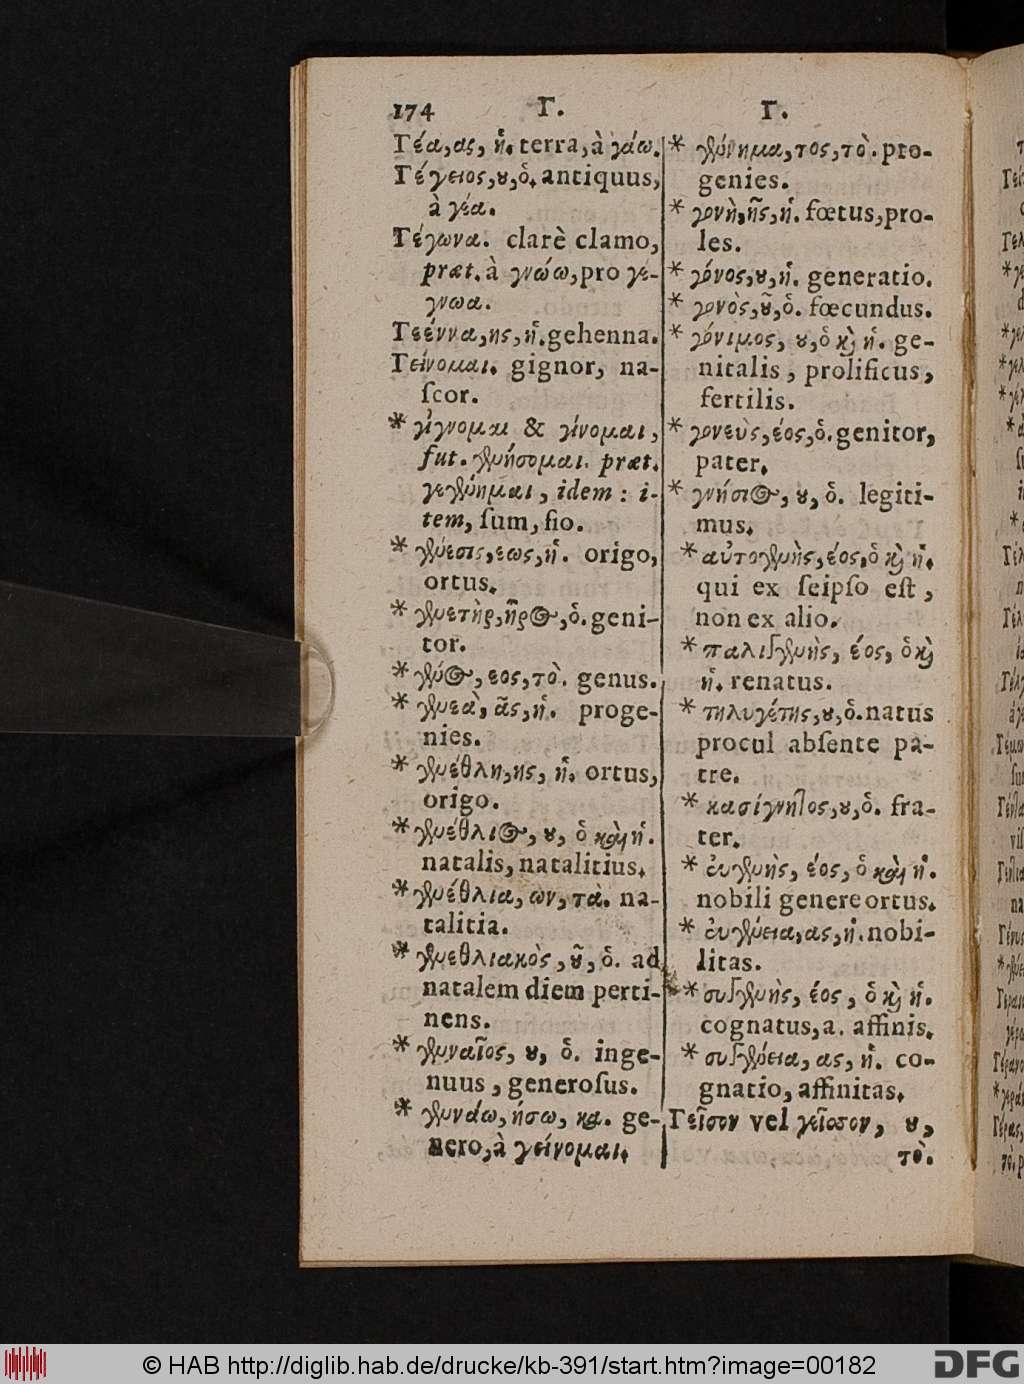 174 Γ. Γ.
Γέα,ας, ἡ. terra,à γάω.
Γέγειος,ου,ὁ. antiquus,
à γέα.
Γέγωνα. clarè clamo,
præt. à γνώω,pro γέ-
γνωα.
Γεέννα,ης,ἡ. gehenna.
Γείνομαι. gignor, na-
ſcor.
* γίγνομαι & γίνομαι,
fut. γενήσομαι. præt.
γεγένημαι, idem: i-
tem, ſum, fio.
* γένεσις,εως,ἡ. origo,
ortus.
* γενετὴρ,ῆρος,ὁ. geni-
tor.
* γένος, εος,τὸ. genus.
* γενεὰ, ᾶς,ἡ. proge-
nies.
* γενέθλη,ης, ἡ. ortus,
origo.
* γενέθλιος, ου, ὁ καὶ ἡ.
natalis, natalitius.
* γενέθλια, ων, τὰ. na-
talitia.
* γενεθλιακὸς, οῦ, ὁ. ad
natalem diem perti-
nens.
* γενναῖος, ου, ὁ. inge-
nuus, generoſus.
* γεννάω, ήσω, κα. ge-
nero,à γείνομαι.
* γέννημα,τος,τὸ. pro-
genies.
* γονὴ,ῆς,ἡ. fœtus,pro-
les.
* γόνος,ου,ἡ. generatio.
* γονὸς,οῦ,ὁ. fœcundus.
* γόνιμος, ου,ὁ καὶ ἡ. ge-
nitalis, prolificus,
fertilis.
* γονεὺς,έος,ὁ. genitor,
pater.
* γνήσιος, ου, ὁ. legiti-
mus.
* αὐτογενὴς,έος,ὁ καὶ ἡ.
qui ex ſeipſo eſt,
non ex alio.
* παλιγγενὴς, έος, ὁ καὶ
ἡ. renatus.
* τηλυγέτης,ου,ὁ. natus
procul abſente pa-
tre.
* κασίγνητος,ου,ὁ. fra-
ter.
* εὐγενὴς, έος, ὁ καὶ ἡ.
nobili genere ortus.
* εὐγένεια,ας,ἡ. nobi-
litas.
* συγγενὴς, έος, ὁ καὶ ἡ.
cognatus,a. affinis.
* συγγένεια, ας, ἡ. co-
gnatio, affinitas.
Γεῖσον vel γεῖσσον, ου,
τὸ.
© HAB http://diglib.hab.de/drucke/kb-391/start.htm?image=00182
DFG